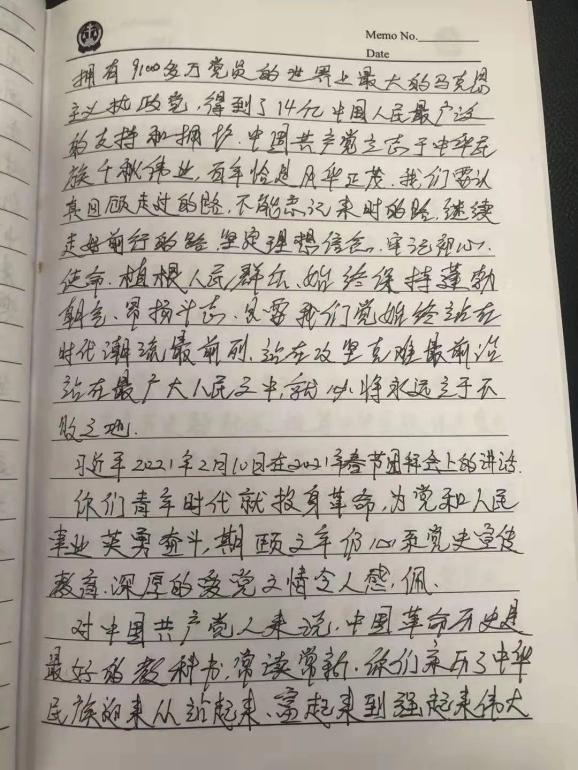 Memo No.
Date
拥有9100多万党员的世界上最大的马克思
主义执政党,得到了14亿中国人民最广泛
的支持和拥护.中国共产党立志于中华民
族千秋伟业,百年恰是风华正茂.我们要认
真回顾走过的路,不能忘记来时的路,继续
走好前行的路,坚定理想信念,牢记初心
使命,植根人民群众,始终保持蓬勃
朝气、昂扬斗志.只要我们党始终站在
时代潮流最前列、站在攻坚克难最前沿
站在最广大人民之中,就必将永远立于不
败之地.
习近平2021年2月10日在2021年春节团拜会上的讲话.
你们青年时代就投身革命,为党和人民
事业英勇奋斗,期颐之年仍心系党史宣传
教育,深厚的爱党之情令人感佩.
对中国共产党人来说,中国革命历史是
最好的教科书,常读常新.你们亲历了中华
民族的来从站起来、富起来到强起来伟大